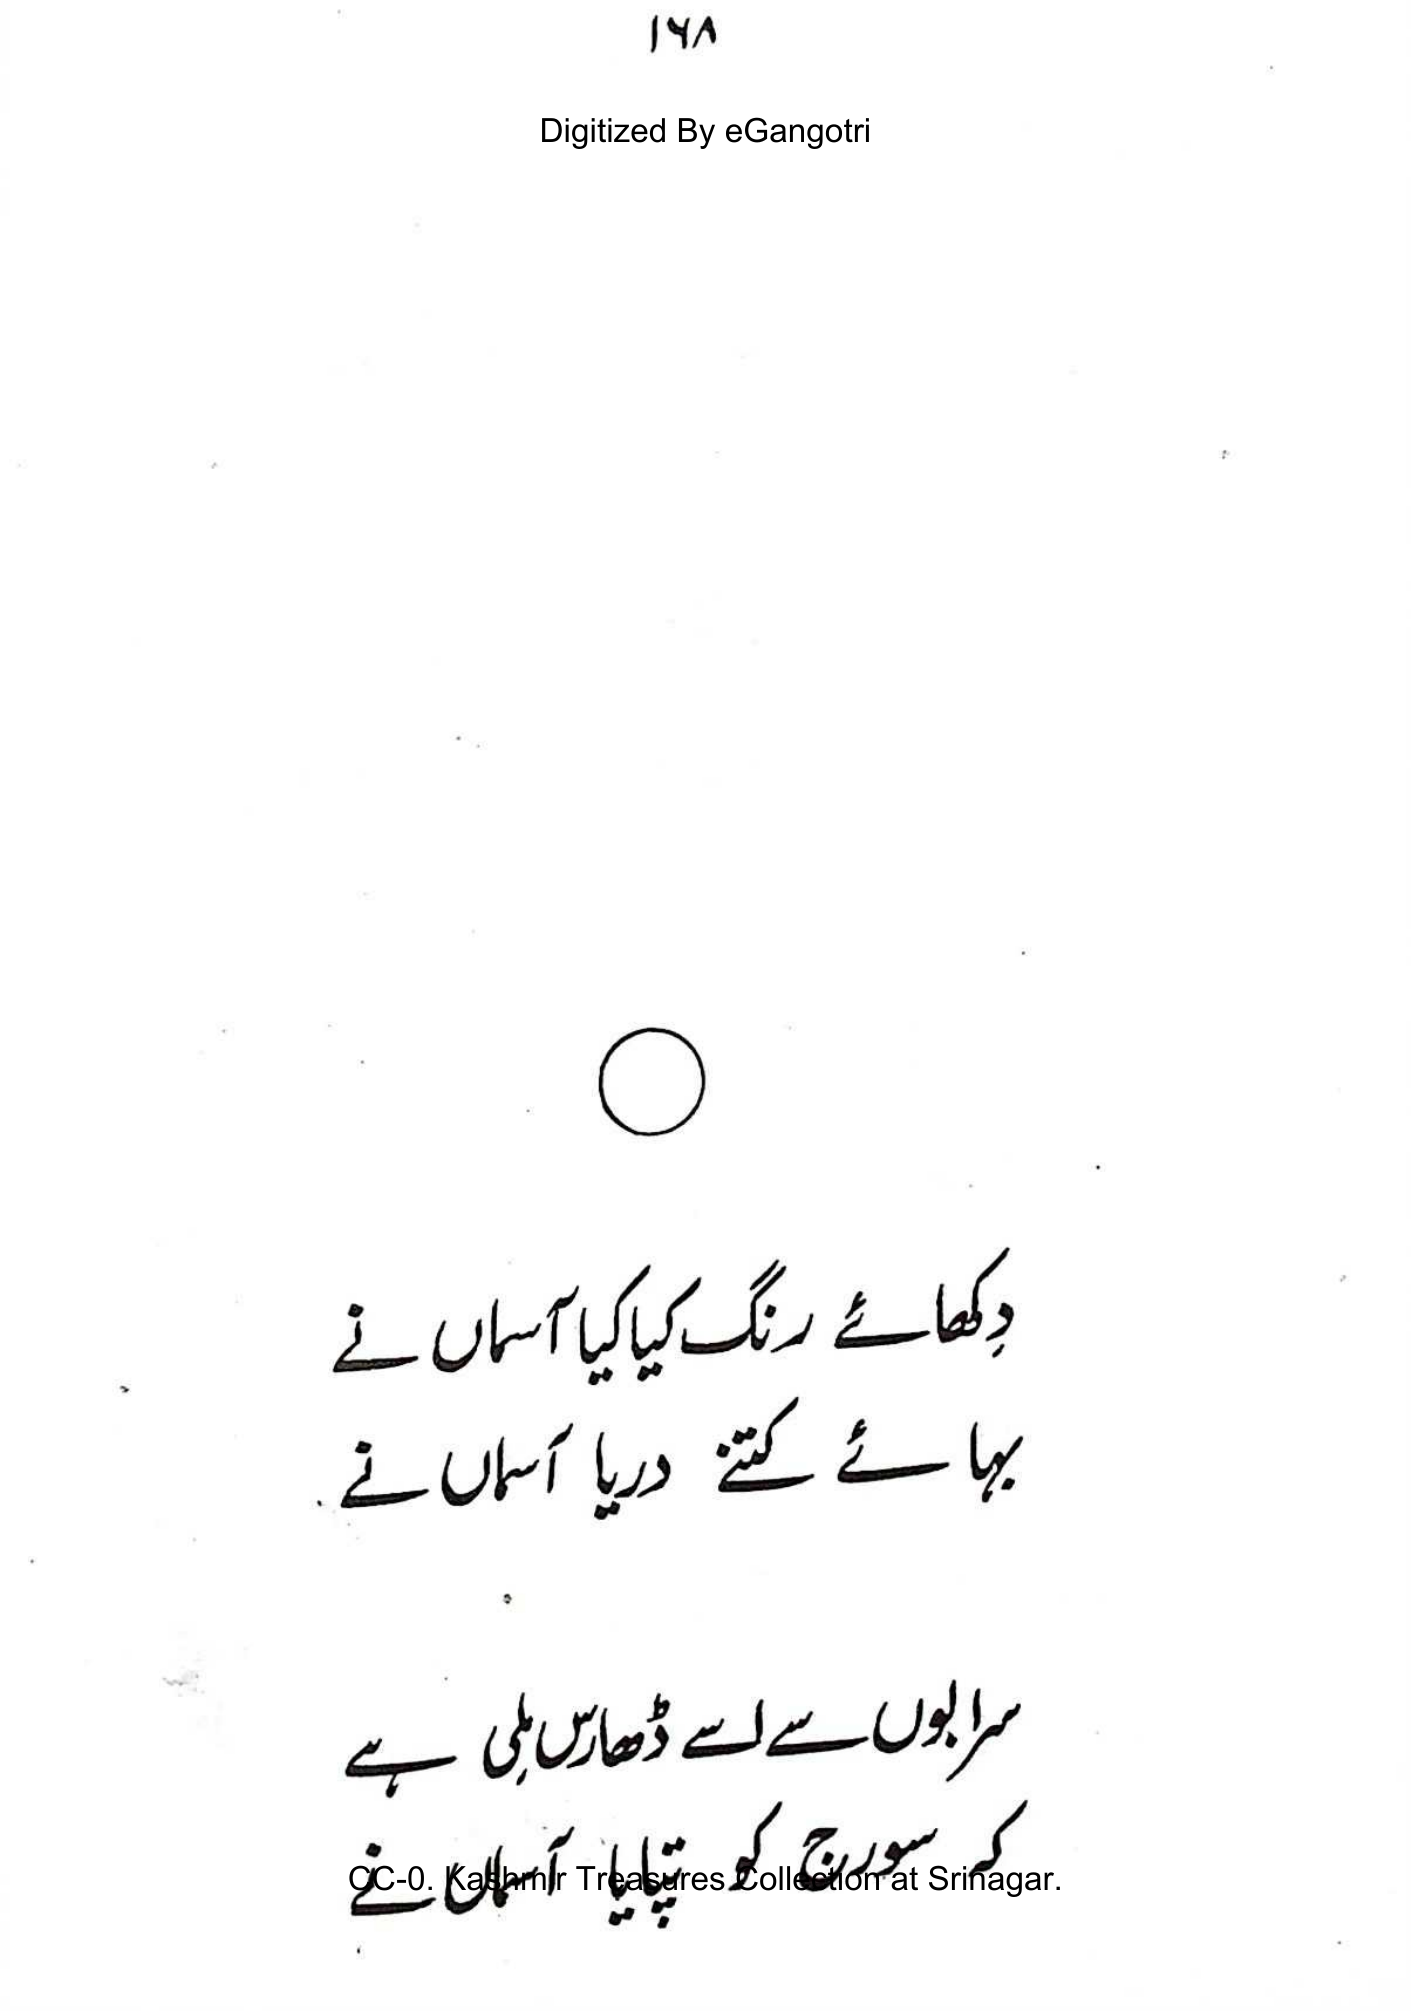 ۱۶۸
Digitized By eGangotri
دِکھائے رنگ کیا کیا آسماں نے
بہائے کتنے دریا آسماں نے
سرابوں سے اسے ڈھارس مِلی ہے
کہ سورج کو تپایا آسماں نے
CC-0. Kashmir Treasures Collection at Srinagar.